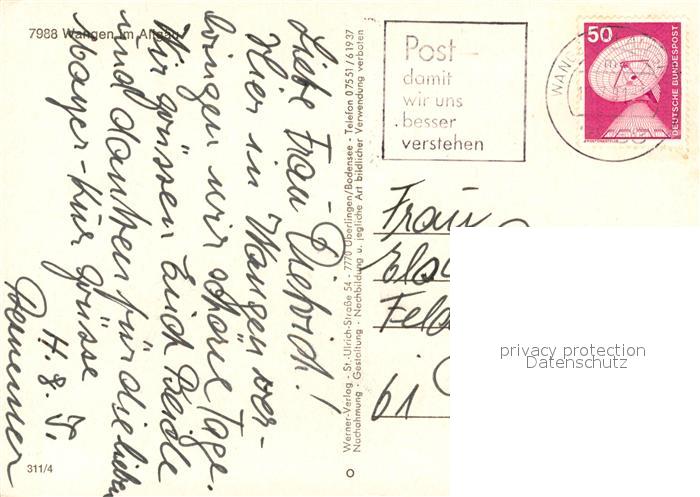 7988 Wangen im Allgäu
Liebe Frau Dietrich!
Hier in Wangen ver-
bringen wir schöne Tage.
Wir grüssen Euch Beide
und danken für die lieben
grüsse
H. g. F.
311/4
Werner-Verlag - St.-Ulrich-Straße 54 - 7770 Überlingen/Bodensee - Telefon 07551/61937
Nachahmung - Gestaltung - Nachbildung u. jegliche Art bildlicher Verwendung verboten
Post -
damit
wir uns
besser
verstehen
50
DEUTSCHE BUNDESPOST
WANG
Frau
61
privacy protection
Datenschutz